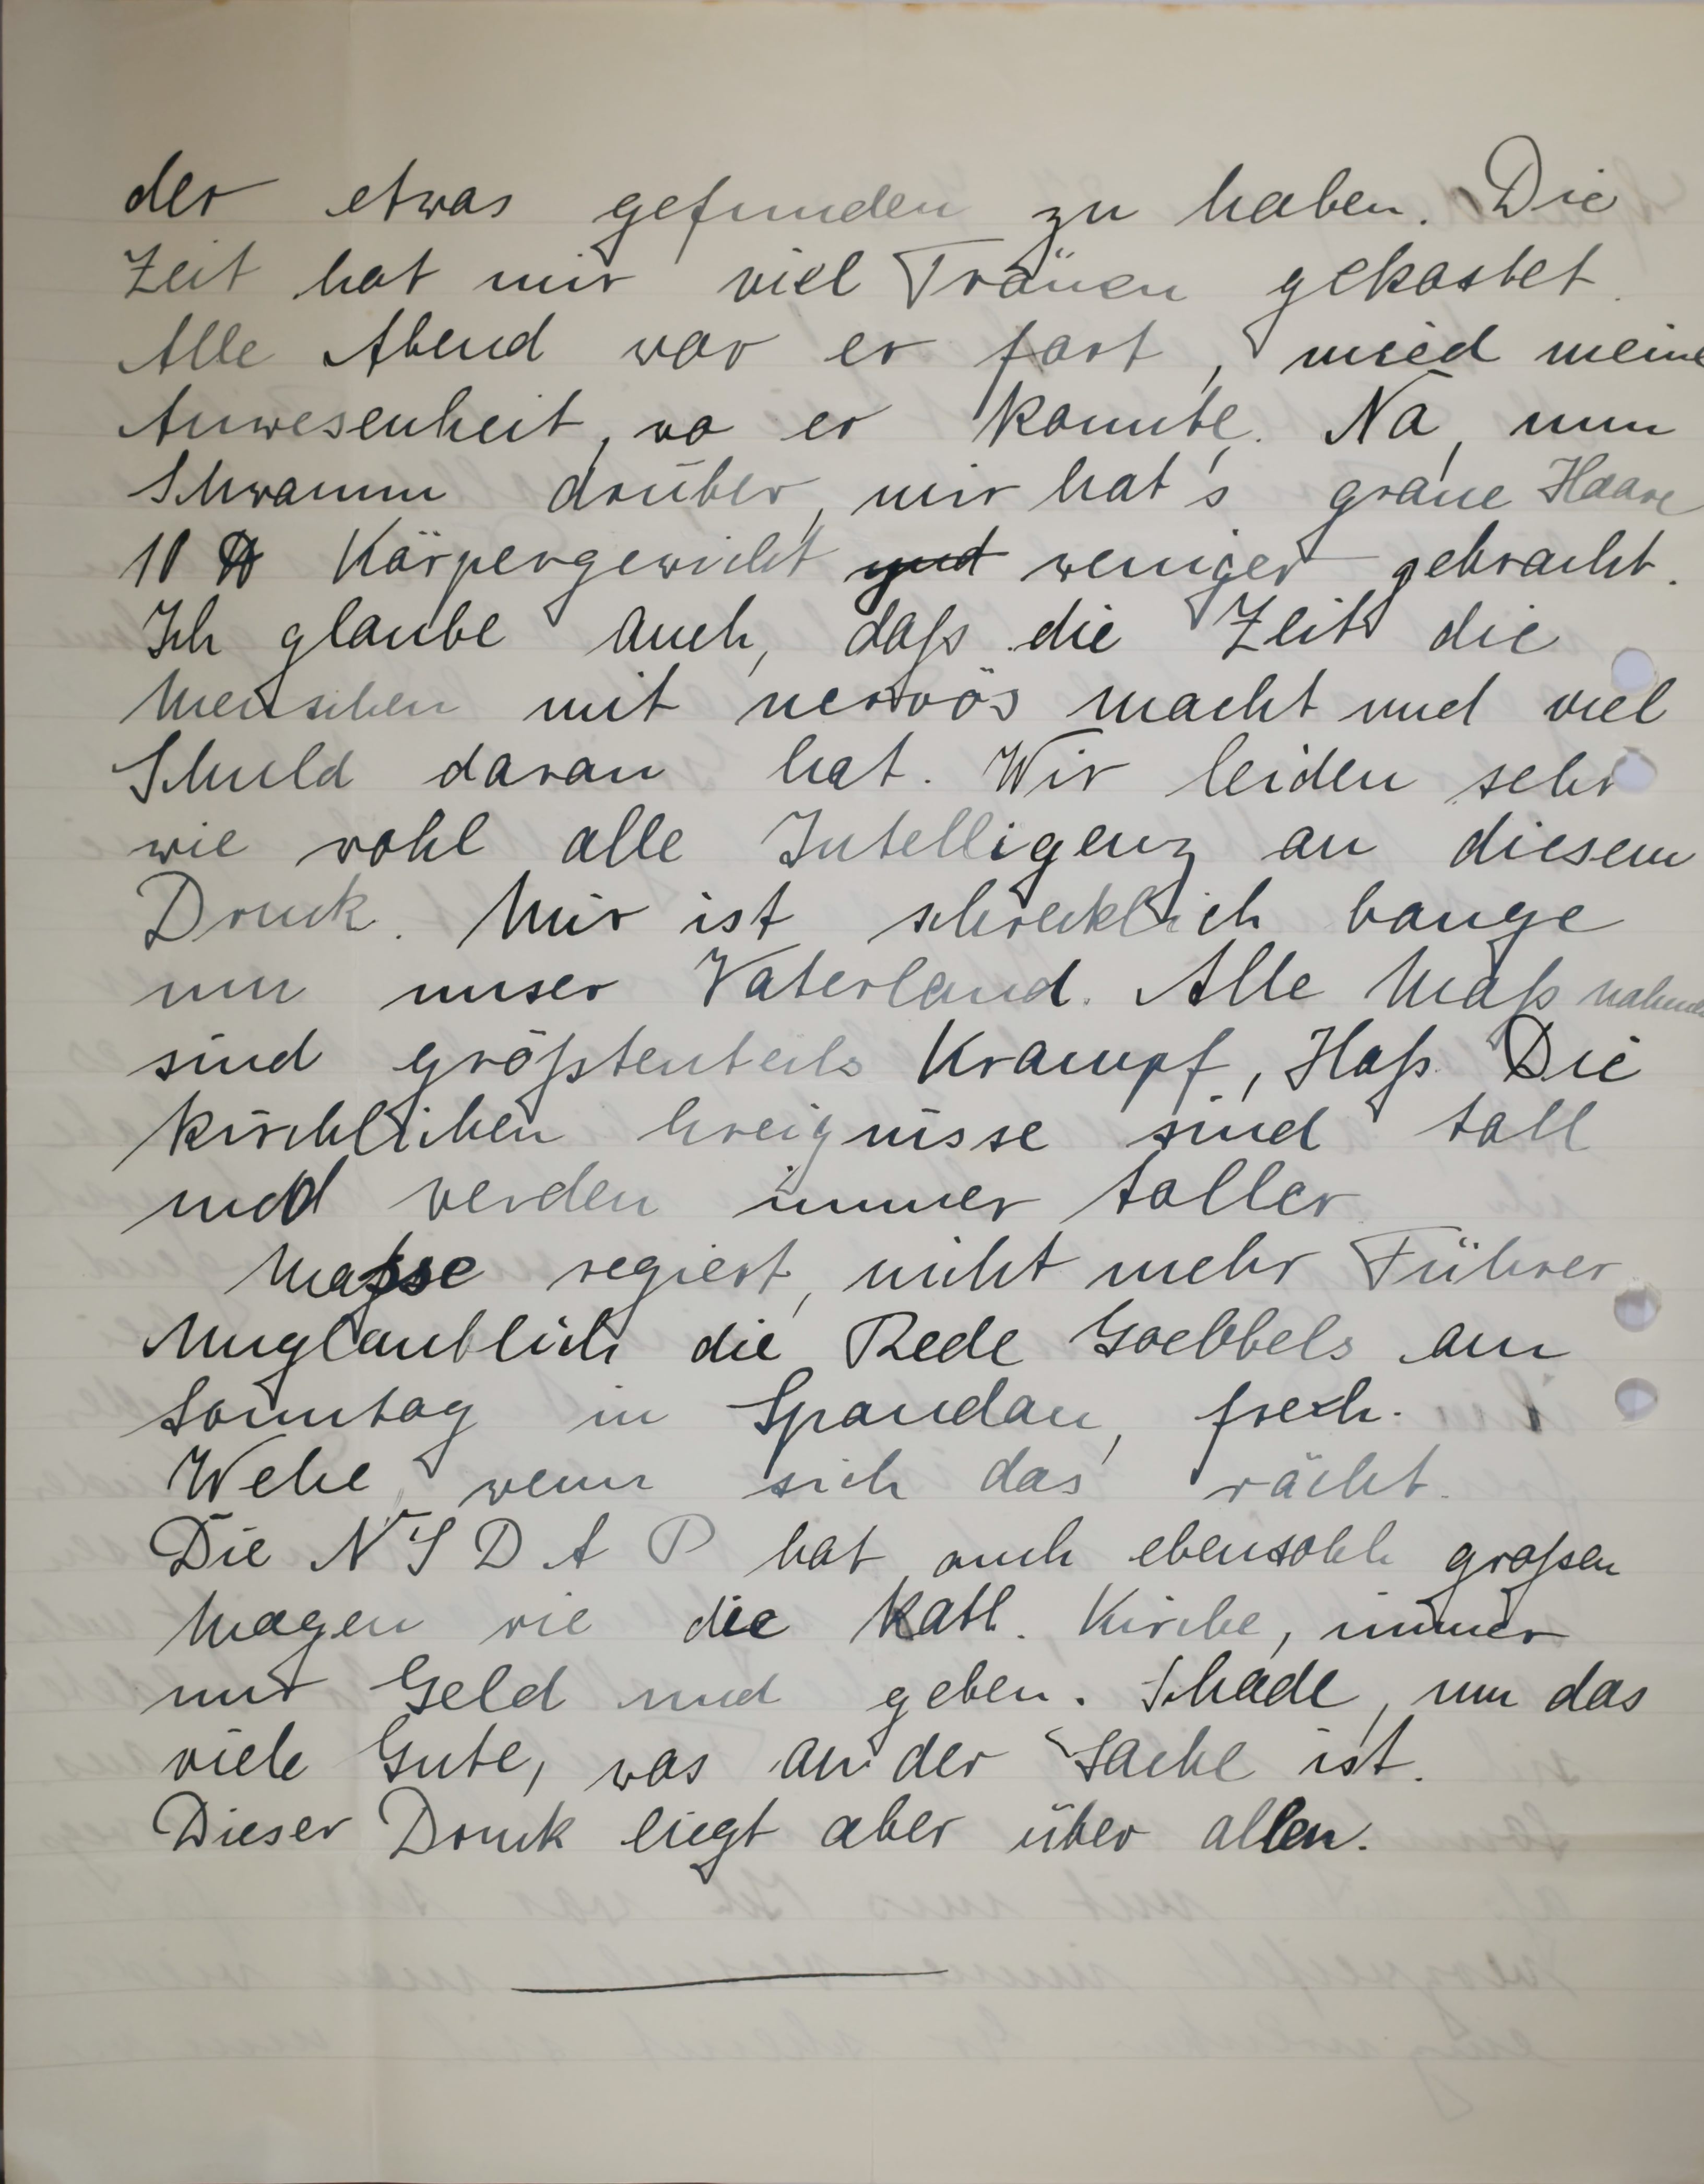 der etwas gefunden zu haben. Die
Zeit hat mir viel Tränen gekostet.
Alle Abend war er fort, mied meine
Anwesenheit, wo er konnte. Na, nun
Schwamm drüber, mir hat's graue Haare
10 ℔ Körpergewicht und weniger gebracht.
Ich glaube auch, daß die Zeit die
Menschen mit nervös macht und viel
Schuld daran hat. Wir leiden sehr
wie wohl alle Intelligenz an diesem
Druck. Mir ist schrecklich bange
um unser Vaterland. Alle Maßnahmen
sind größtenteils Krampf, Haß. Die
kirchlichen Ereignisse sind toll
und werden immer toller
Masse regiert, nicht mehr Führer
Unglaublich die Rede Goebbels am
Sonntag in Spandau, frech.
Wehe, wenn sich das rächt.
Die N S D A P hat auch ebensolch großen
Magen wie die kath. Kirche, immer
nur Geld und geben. Schade, um das
viele Gute, was an der Sache ist.
Dieser Druck liegt aber über allen.